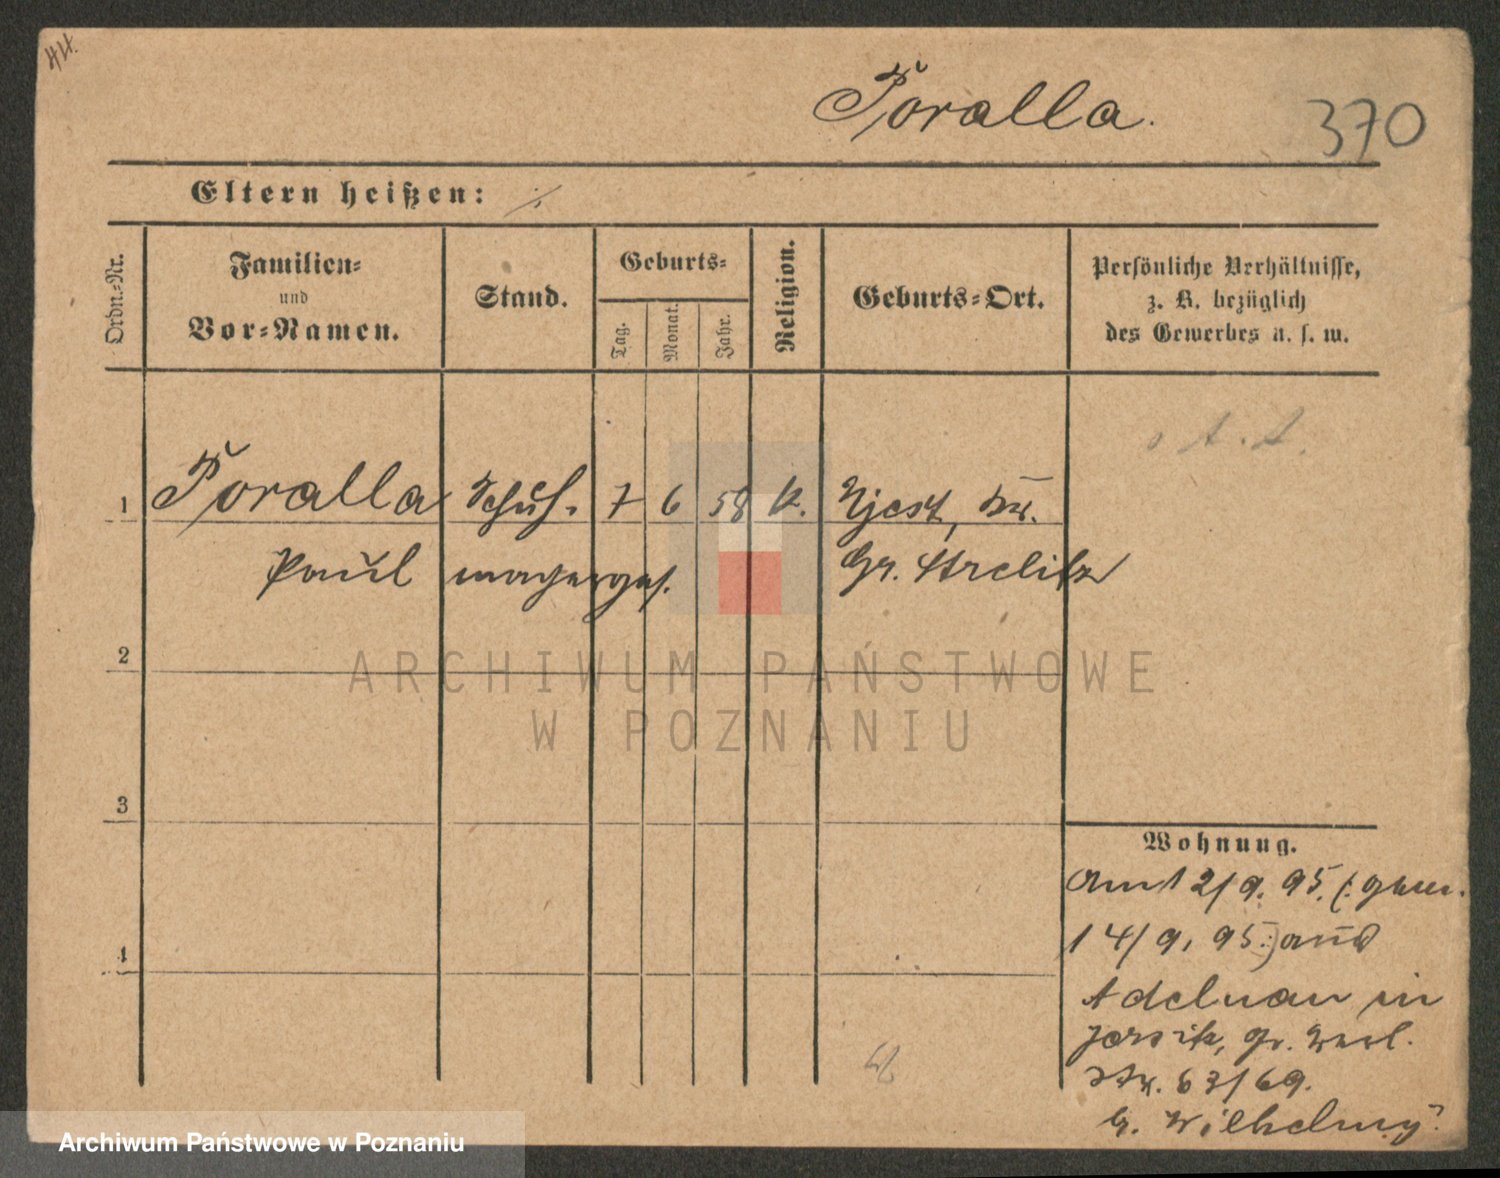 44.
Poralla.
370
Eltern heißen: ·/·
Ordn.=Nr.
Familien=
und
Vor=Namen.
Stand.
Geburts=
Tag.
Monat.
Jahr.
Religion.
Geburts=Ort.
Persönliche Verhältnisse,
z. B. bezüglich
des Gewerbes u. s. w.
1 Poralla Schuh- 7 6 58 k. Ujest, Kr.
Paul macherges. Gr. Strelitz
2
ARCHIWUM PAŃSTWOWE
W POZNANIU
3
Wohnung.
2/9. 95.
4
14/9. 95.) aus
Adelnau in
Jersitz, Gr. Berl.
Str. 63/69.
b. Wilhelmy.
Archiwum Państwowe w Poznaniu